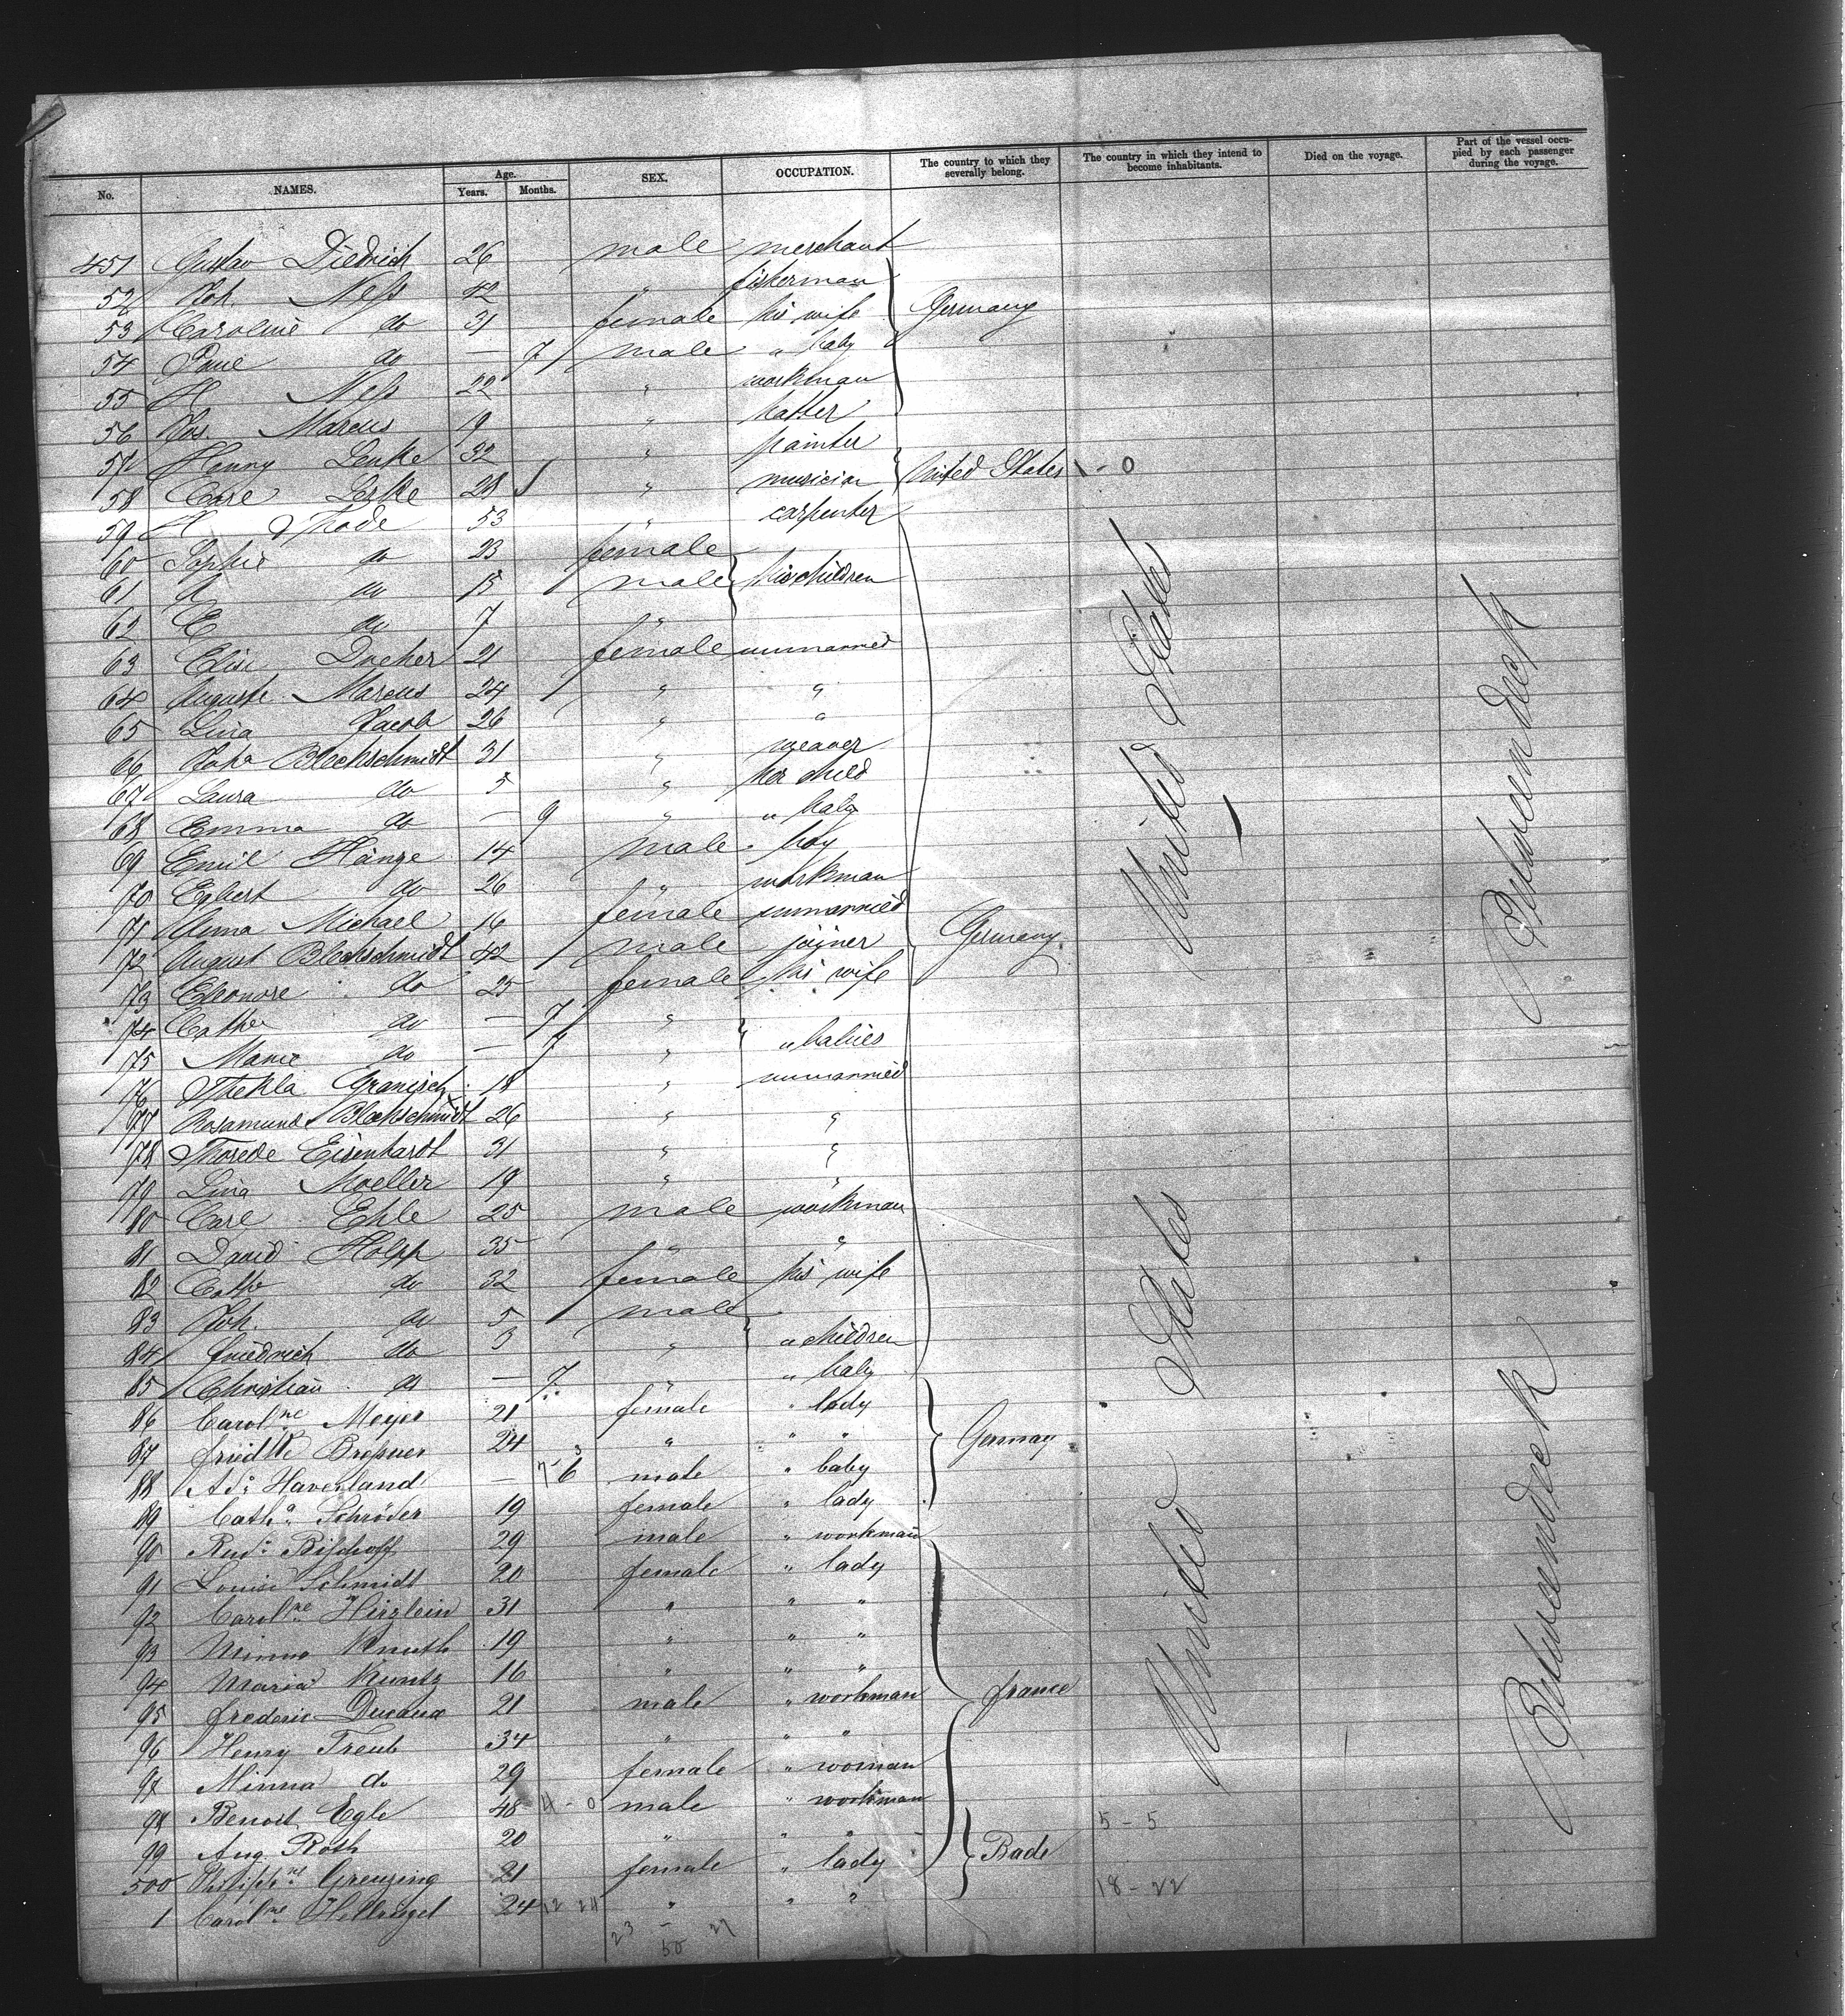 No. NAMES. Age. Years. Months. SEX. OCCUPATION. The country to which they severally belong. The country in which they intend to become inhabitants. Died on the voyage. Part of the vessel occupied by each passenger during the voyage.
451 Gustav Diedrich 26 male merchant
52 Joh. Neß 42 " fisherman
53 Caroline do 31 female his wife Germany
54 do — 7 male " baby
55 H Neß 22 " workman
56 Jos. Marcus 19 " hatter
57 Henny Lenke 32 " painter
58 Carl Leske 28 " musician United States - 0
59 H Thode 53 " carpenter
60 Sophie do 23 female
61 A do 15 male his children
62 E do 7 "
63 Elise Docher 21 female unmarried
64 Auguste Marcus 24 " "
65 Lina Jacob 26 " "
66 Blechschmidt 31 " weaver
67 Laura do 5 " her child
68 Emma do — 9 " " baby
69 Emil Hänge 14 male boy
70 Egbert do 26 " workman
71 Anna Michael 16 female unmarried
72 August Blechschmidt 42 male joyner Germany
73 Eleonore do 25 female his wife
74 Cathe do — 7 "
75 Marie do — 7 " " babies
76 Thekla Granisch 18 " unmarried
77 Rosamunde Blechschmidt 26 " "
78 Eisenhardt 31 " "
79 Lina Moeller 19 " "
80 Carl Ehle 25 male workman
81 David Holpp 35 " "
82 Cathe do 32 female his wife
83 Joh. do 5 male
84 Friedrich do 3 " " children
85 Christian do — 7 " " baby
86 Carolne Meyer 21 female " lady
87 24 " " " Germany
88 Ad: Haverland — 6 male " baby
89 Catha Schröder 19 female " lady
90 Rud: Bischoff 29 male " workman
91 Louise Schmidt 20 female " lady
92 Carolne Hirzlein 31 " " "
93 Minna Knuth 19 " " "
94 Maria Kuntz 16 " " "
95 frederic Ducaux 21 male " workman france
96 Henry Treub 34 " " "
97 Minna do 29 female " woman
98 Benoit Egle 48 4 - 0 male " workman
99 Aug. Roth 20 " " " Bade 5 - 5
500 Philippne Greuzing 21 female " lady
1 Carolne Hellriegel 24 12 24 " " " 18 - 22
23 - 27
50
United States
Between deck
United States
Between deck